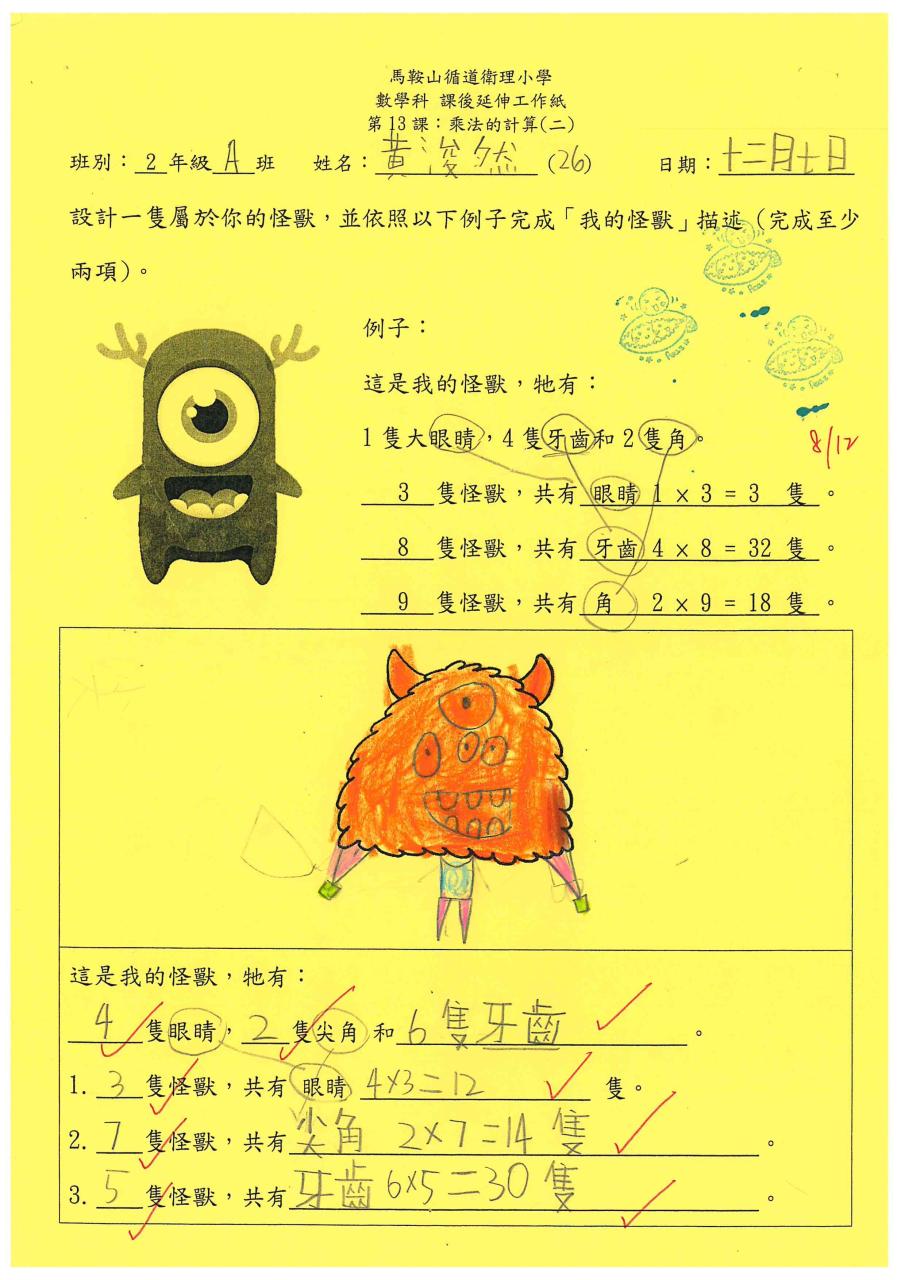 馬鞍山循道衛理小學
數學科 課後延伸工作紙
第13課：乘法的計算(二)
班別：2年級A班 姓名：黃浚然(26) 日期：十二月七日
設計一隻屬於你的怪獸，並依照以下例子完成「我的怪獸」描述（完成至少
兩項）。
例子：
這是我的怪獸，牠有：
1隻大眼睛，4隻牙齒和2隻角。
8/12
3 隻怪獸，共有 眼睛 1 × 3 = 3 隻 。
8 隻怪獸，共有 牙齒 4 × 8 = 32 隻 。
9 隻怪獸，共有 角 2 × 9 = 18 隻 。
這是我的怪獸，牠有：
4 隻眼睛，2 隻尖角 和 6隻牙齒 。
1. 3 隻怪獸，共有 眼睛 4×3=12 隻。
2. 7 隻怪獸，共有 尖角 2×7=14 隻 。
3. 5 隻怪獸，共有 牙齒 6×5=30 隻 。